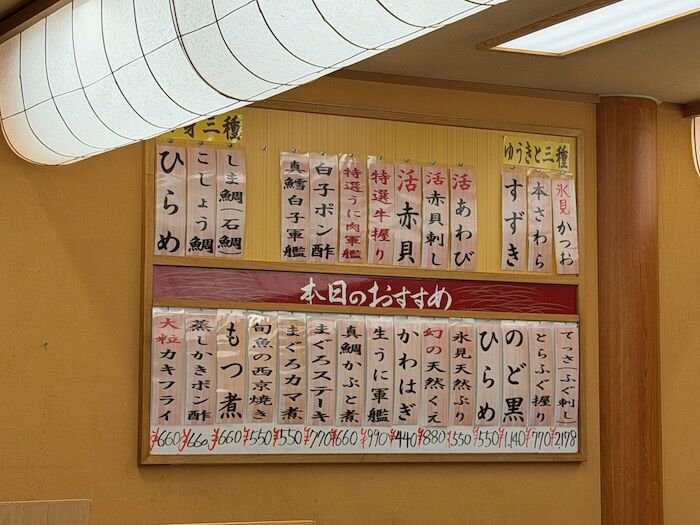 ゆうきと三種
氷見かつお
本さわら
すずき
活あわび
活赤貝刺し
活赤貝
特選牛握り
特選うに肉軍艦
白子ポン酢
真鱈白子軍艦
身三種
しま鯛(石鯛)
こしょう鯛
ひらめ
本日のおすすめ
てっさ(ふぐ刺し) ¥2,178
とらふぐ握り ¥770
のど黒 ¥1,140
ひらめ ¥550
氷見天然ぶり ¥550
幻の天然くえ ¥880
かわはぎ ¥440
生うに軍艦 ¥990
真鯛かぶと煮 ¥660
まぐろステーキ ¥770
まぐろカマ煮 ¥550
旬魚の西京焼き ¥550
もつ煮 ¥660
蒸しかきポン酢 ¥660
大粒カキフライ ¥660